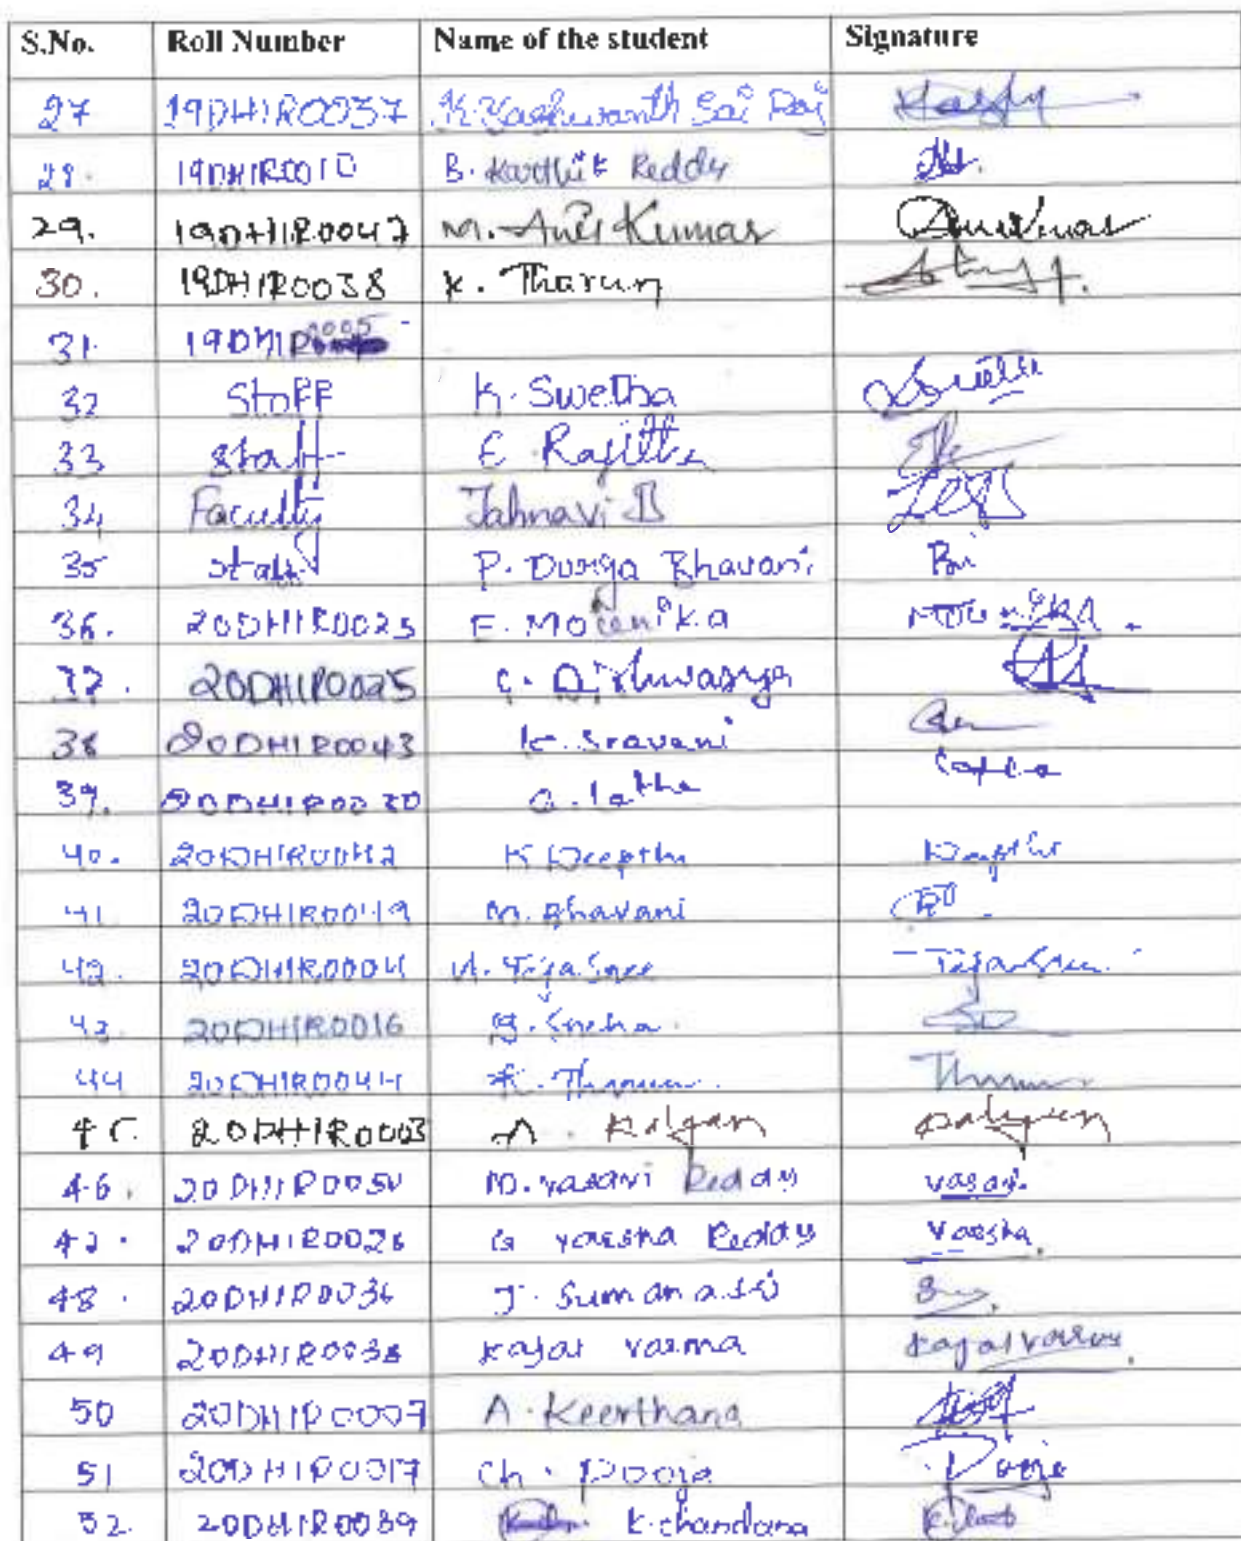 S.No. Roll Number Name of the student Signature
27 19DH1R0037 K. Yashwanth Sai Raj
28. 19DH1R0010 B. Karthik Reddy
29. 19DH1R0047 M. Anil Kumar Anilkumar
30. 19DH1R0038 K. Tharun
31. 19DH1R0005
32 Staff K. Swetha Swetha
33 Staff E. Rajitha
34 Faculty Jahnavi B
35 Staff P. Durga Bhavani
36. 20DH1R0025 E. Mounika MOUNIKA.
37. 20DH1R0025 C. Aishwarya
38 20DH1R0043 K. Sravani
39. 20DH1R0030 G. latha Latha
40. 20DH1R0042 K Deepthi Deepthi
41 20DH1R0049 M. Bhavani
42. 20DH1R0004 A. Teja Sree Teja Sree
43. 20DH1R0016 B. Sneha
44 20DH1R0044 K. Tharun Tharun
45. 20DH1R0003 A. Kalyan Kalyan
46. 20DH1R0050 M. Vasavi Reddy Vasavi.
47. 20DH1R0026 G Varsha Reddy Varsha.
48. 20DH1R0036 J. Sumanasri
49 20DH1R0038 Kajal Varma Kajal Varma.
50 20DH1R0007 A. Keerthana
51 20DH1R0017 Ch. Pooja Pooja
52. 20DH1R0039 K. chandana